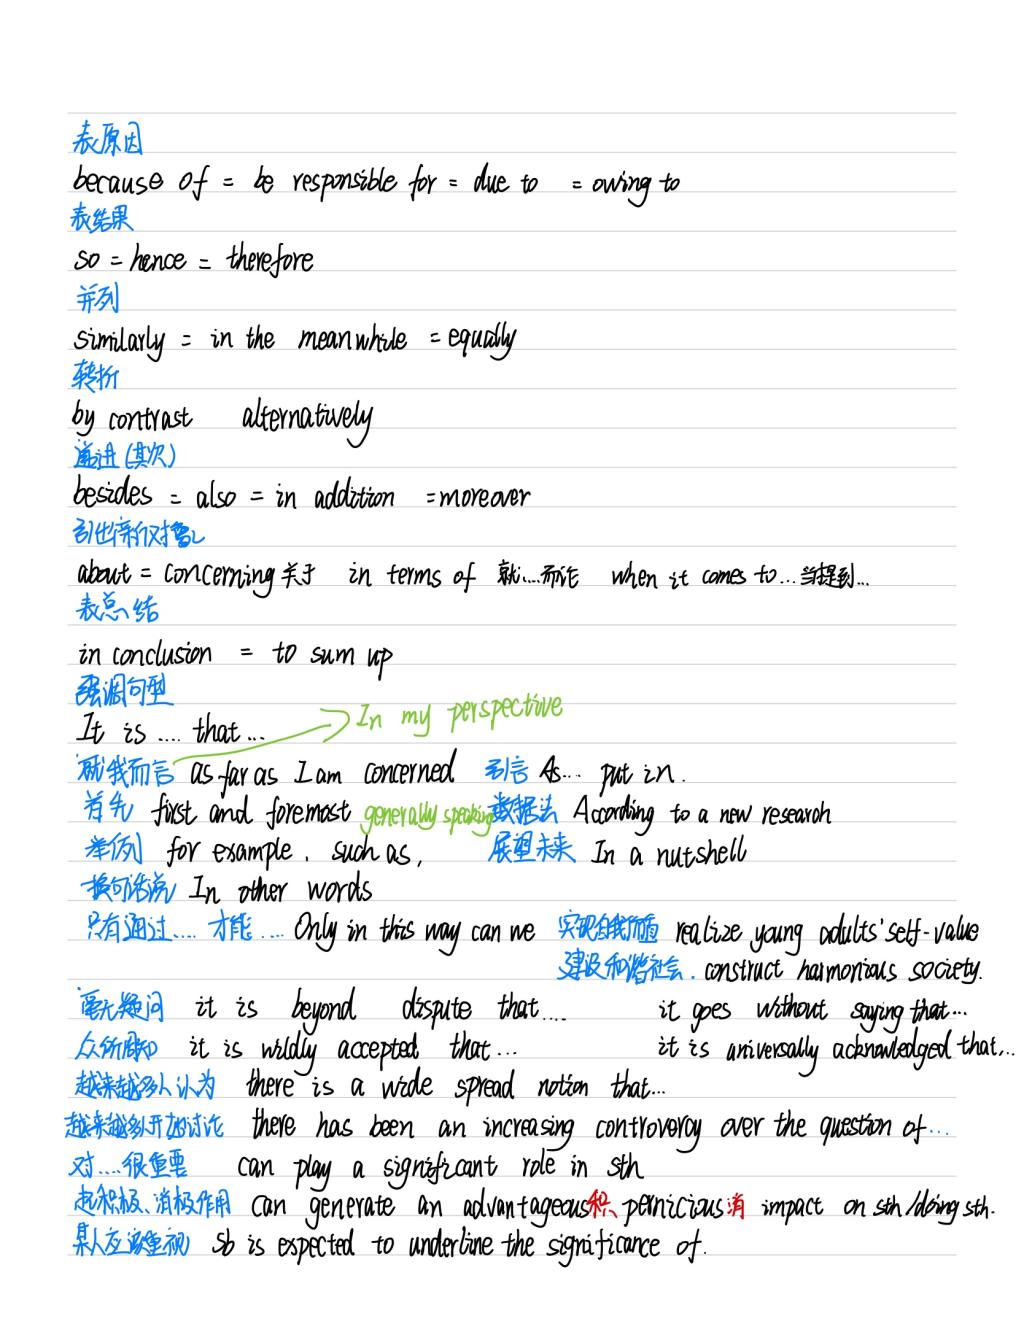 表原因
because of = be responsible for = due to = owing to
表结果
so = hence = therefore
并列
similarly = in the meanwhile = equally
转折
by contrast alternatively
递进(其次)
besides = also = in addition = moreover
引出新对象
about = concerning 关于 in terms of 就....而论 when it comes to... 当提到...
表总结
in conclusion = to sum up
强调句型
It is .... that... In my perspective
就我而言 as far as I am concerned 引言 As... put in.
首先 first and foremost generally speaking 数据法 According to a new research
举例 for example. such as, 展望未来 In a nutshell
换句话说 In other words
只有通过.... 才能 .... Only in this way can we 实现自我价值 realize young adults' self-value
建设和谐社会. construct harmonious society.
毫无疑问 it is beyond dispute that.... it goes without saying that...
众所周知 it is wildly accepted that... it is aniversally acknowledged that...
越来越多人认为 there is a wide spread notion that...
越来越多开始讨论 there has been an increasing controvercy over the question of...
对....很重要 can play a significant role in sth
起积极、消极作用 can generate an advantageous积、pernicious消 impact on sth/doing sth.
某人应该重视 sb is expected to underline the significance of.